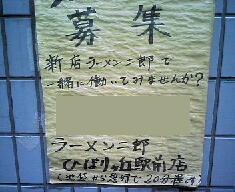 募集
新店ラーメン二郎で
一緒に働いてみませんか?
ラーメン二郎
ひばりヶ丘駅前店
(池袋から急行で20分程です)